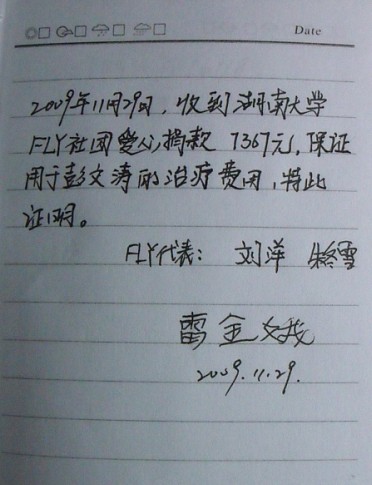 Date
2009年11月29日，收到湖南大学
FLY社团爱心捐款 7367元，保证
用于彭文涛的治疗费用，特此
证明。
FLY代表： 刘洋
雷金娥
2009.11.29.